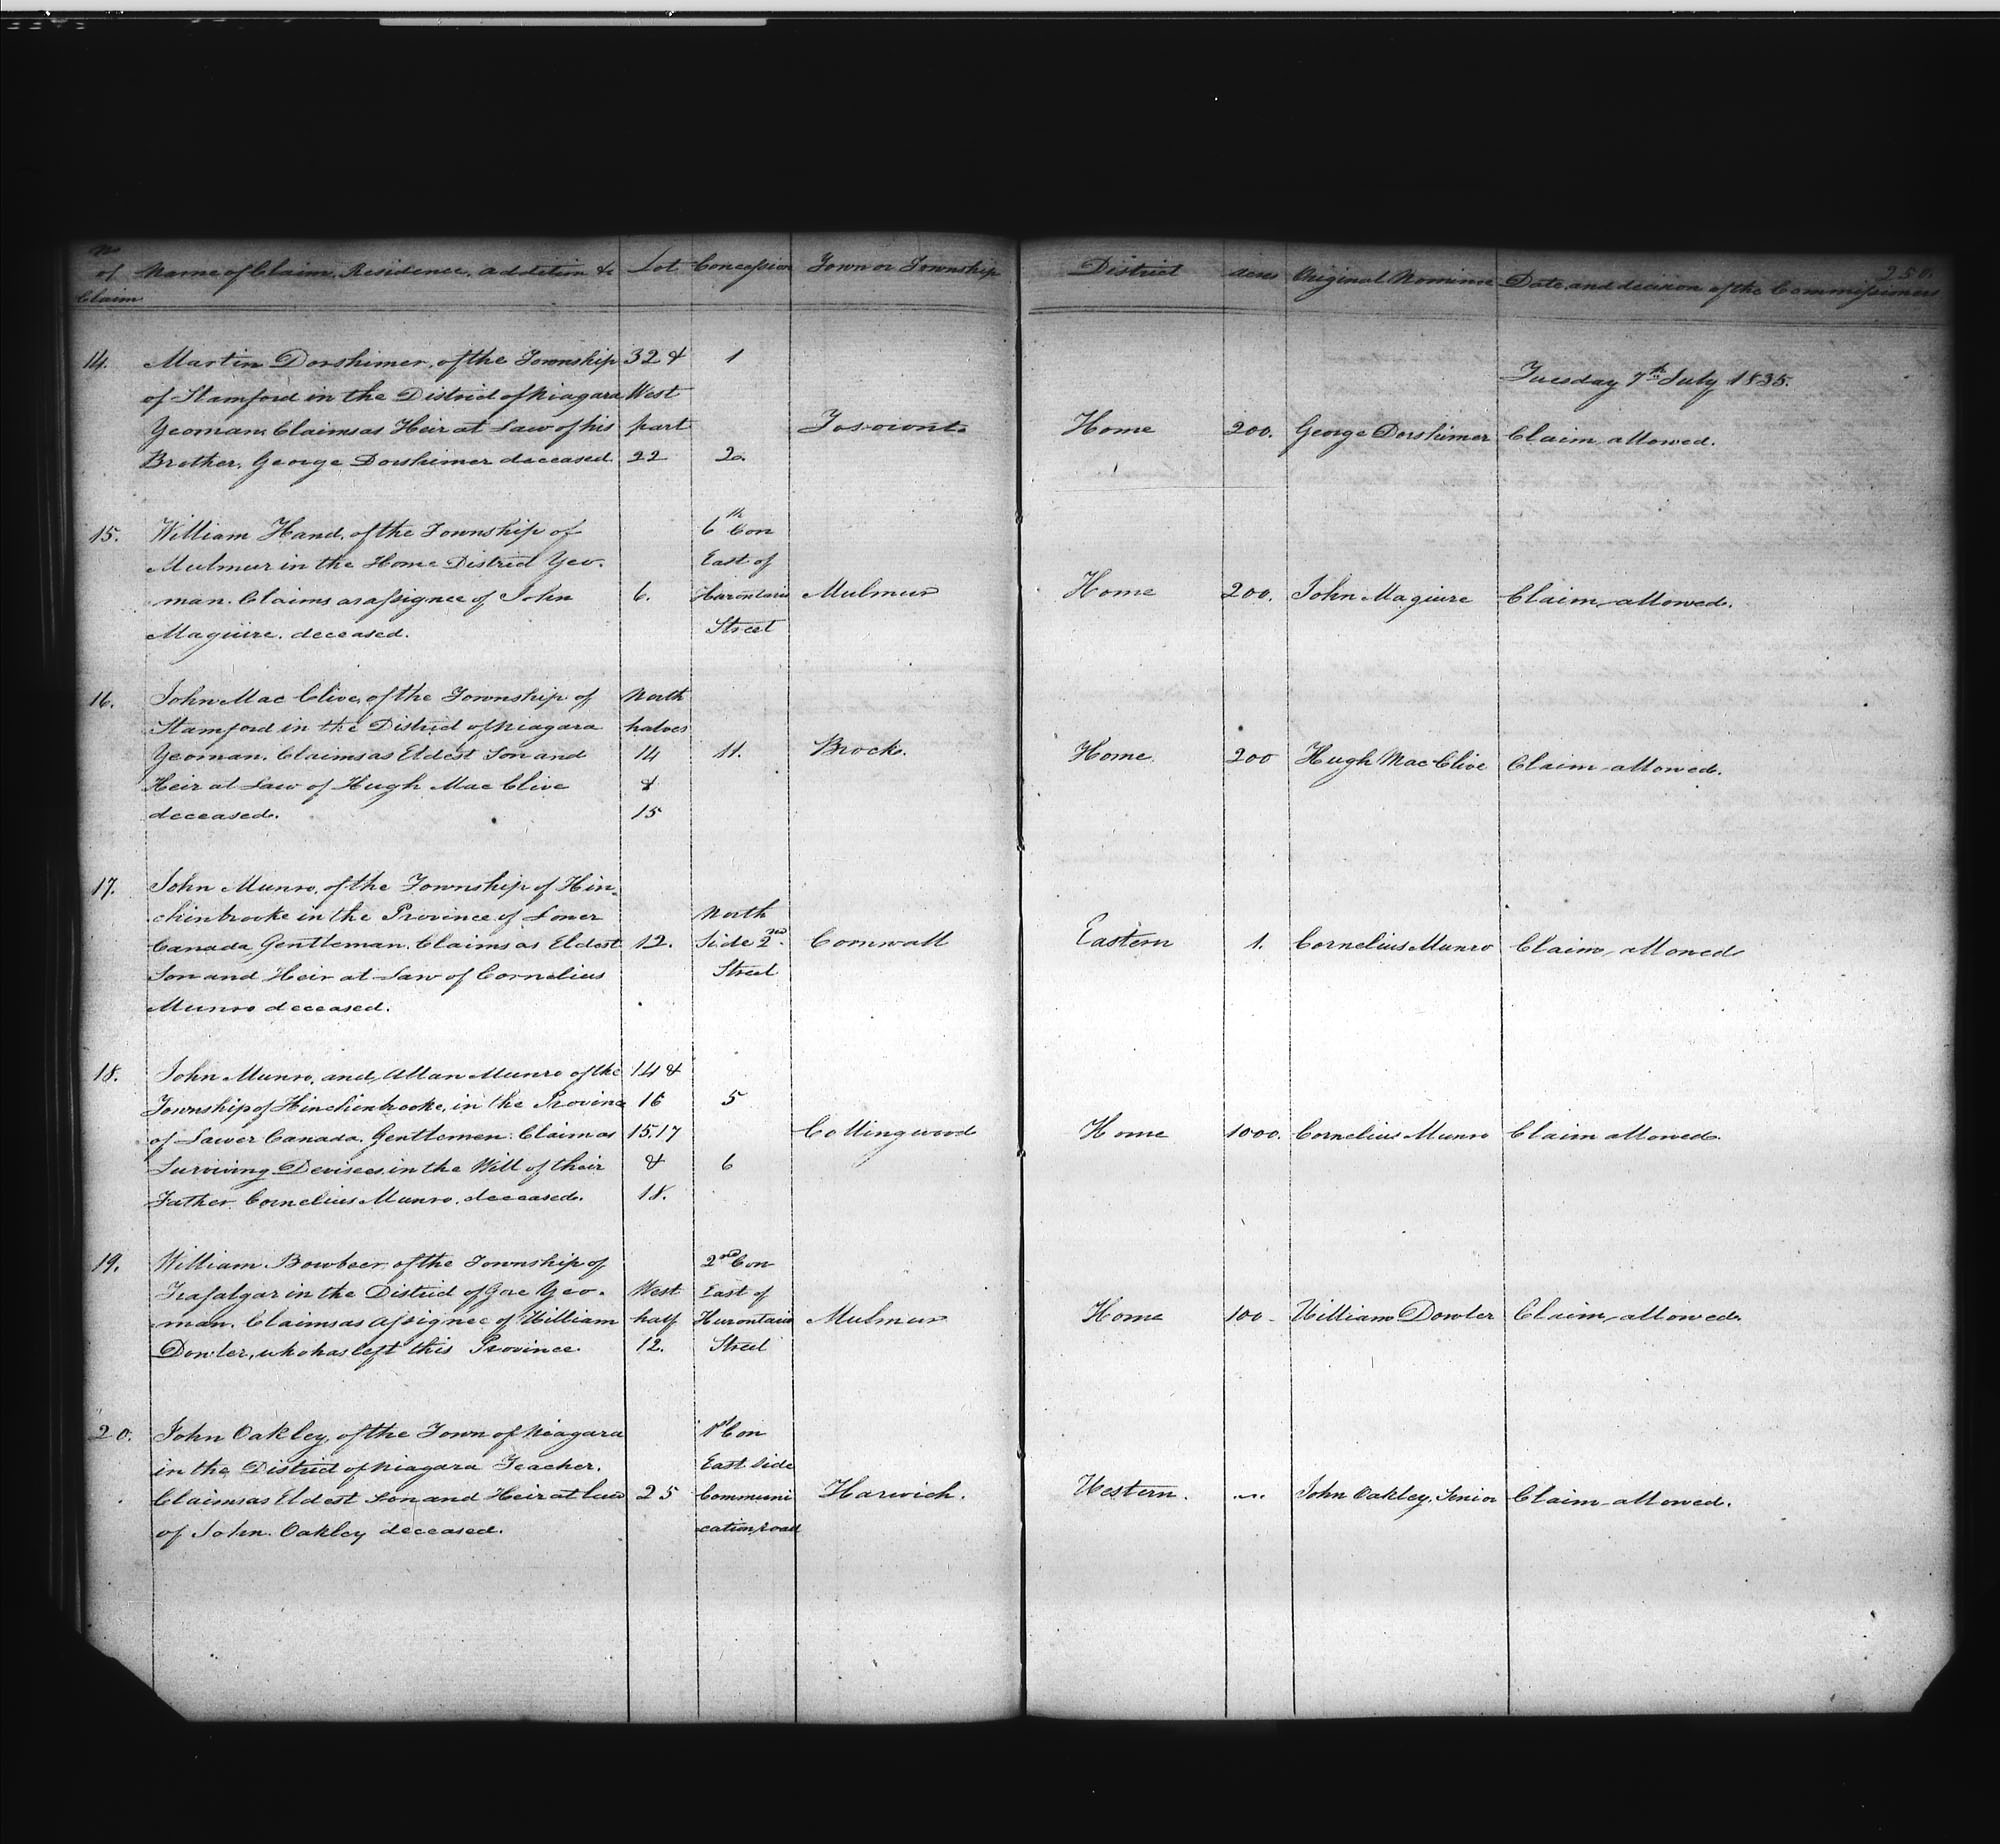 No of Claim Name of Claim, Residence, addition &c Lot Concession Town or Township District acres Original Nominee Date and decision of the Commissioners 250.
Tuesday 7th July 1835.
14. Martin Dorshimer, of the Township 32 & 1
of Stamford in the District of Niagara West
Yeoman, Claims as Heir at Law of his part Tosoront. Home 200. George Dorshimer Claim allowed.
Brother, George Dorshimer deceased 22 2.
15. William Hand, of the Township of 6th Con
Mulmur in the Home District Yeo- East of
man. Claims as assignee of John 6. Hurontario Mulmur Home 200. John Maguire Claim allowed.
Maguire, deceased. Street
16. John Mac Clive, of the Township of North
Stamford in the District of Niagara halves
Yeoman, Claims as Eldest Son and 14 11. Brock. Home. 200 Hugh Mac Clive Claim allowed.
Heir at Law of Hugh Mac Clive &
deceased. 15
17. John Munro, of the Township of Hin-
chinbrooke in the Province of Lower North
Canada, Gentleman, Claims as Eldest 12. Side 2nd Cornwall Eastern 1. Cornelius Munro Claim allowed
Son and Heir at Law of Cornelius Street
Munro deceased.
18. John Munro, and Allan Munro of the 14 &
Township of Hinchinbrooke, in the Province 16 5
of Lower Canada, Gentlemen. Claim as 15.17 Collingwood Home 1000. Cornelius Munro Claim allowed.
Surviving Devisees in the Will of their & 6
Father Cornelius Munro, deceased. 18.
19. William Bowbeer of the Township of 2nd Con
Trafalgar in the District of Gore Yeo- West East of
man. Claims as assignee of William half Hurontario Mulmur Home 100 William Dowler Claim allowed.
Dowler, who has left this Province. 12. Street
20. John Oakley, of the Town of Niagara 1st Con
in the District of Niagara Teacher. East Side
Claims as Eldest Son and Heir at Law 25 Communi Harwich. Western. John Oakley, Senior Claim allowed.
of John Oakley deceased. cation road